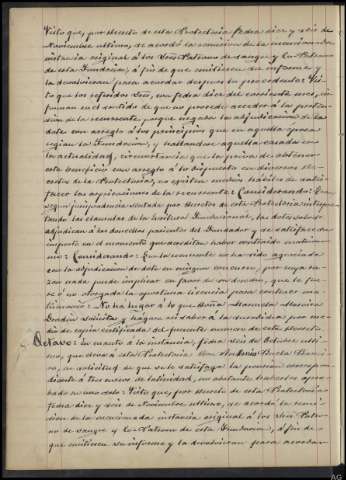 Visto que, por decreto de esta Protectoría fecha diez y seis de
Noviembre último, se acordó la remisión de la mencionada
instancia original á los Sres. Patrono de sangre y Co-Patrono
de esta Fundación, á fin de que emitiesen su informe y
la devolvieran para acordar despues lo procedente: Vis-
to que los referidos Sres. con fecha diez del corriente mes, in-
forman en el sentido de que no procede acceder á la preten-
sión de la recurrente, porque negada la adjudicación de la
dote con arreglo á los principios que en aquella época
regían la Fundación, y hallándose aquella casada en
la actualidad, circunstancia que la priva de obtener
este beneficio con arreglo á lo dispuesto en diversos de-
cretos de la Protectoría, no existen medios hábiles de satis-
facer las aspiraciones de la recurrente: Considerando: Que
según jurisprudencia sentada por decretos de esta Protectoría interpre-
tando las cláusulas de la escritura fundacional, las dotes solo se
adjudican á las doncellas parientes del Fundador y se satisface su
importe en el momento que acreditan haber contraido matrimo-
nio: Considerando: Que la recurrente no ha sido agraciada
con la adjudicación de dote en ningun concurso, por cuya ra-
zon nada puede emplear en favor de su derecho, que le fue-
re ó no otorgada la oportuna licencia para contraer ma-
trimonio: No ha lugar á lo que Doña Manuela
solicita y hágase saber á la interesada por me-
dio de copia certificada del presente número de este decreto.
Octavo: En cuanto á la instancia, fecha seis de Octubre últi-
mo, que eleva á esta Protectoría Don Antonio
en solicitud de que se le satisfaga la pensión correspon-
diente á tres cursos de latinidad, no obstante haberlos apro-
bado en uno solo: Visto que, por decreto de esta Protectoría
fecha diez y seis de Noviembre último, se acordó la remi-
sión de la mencionada instancia original á los Sres. Patro-
no de sangre y Co-Patrono de esta Fundación, á fin de
que emitiesen su informe y la devolvieran para acordar
AG